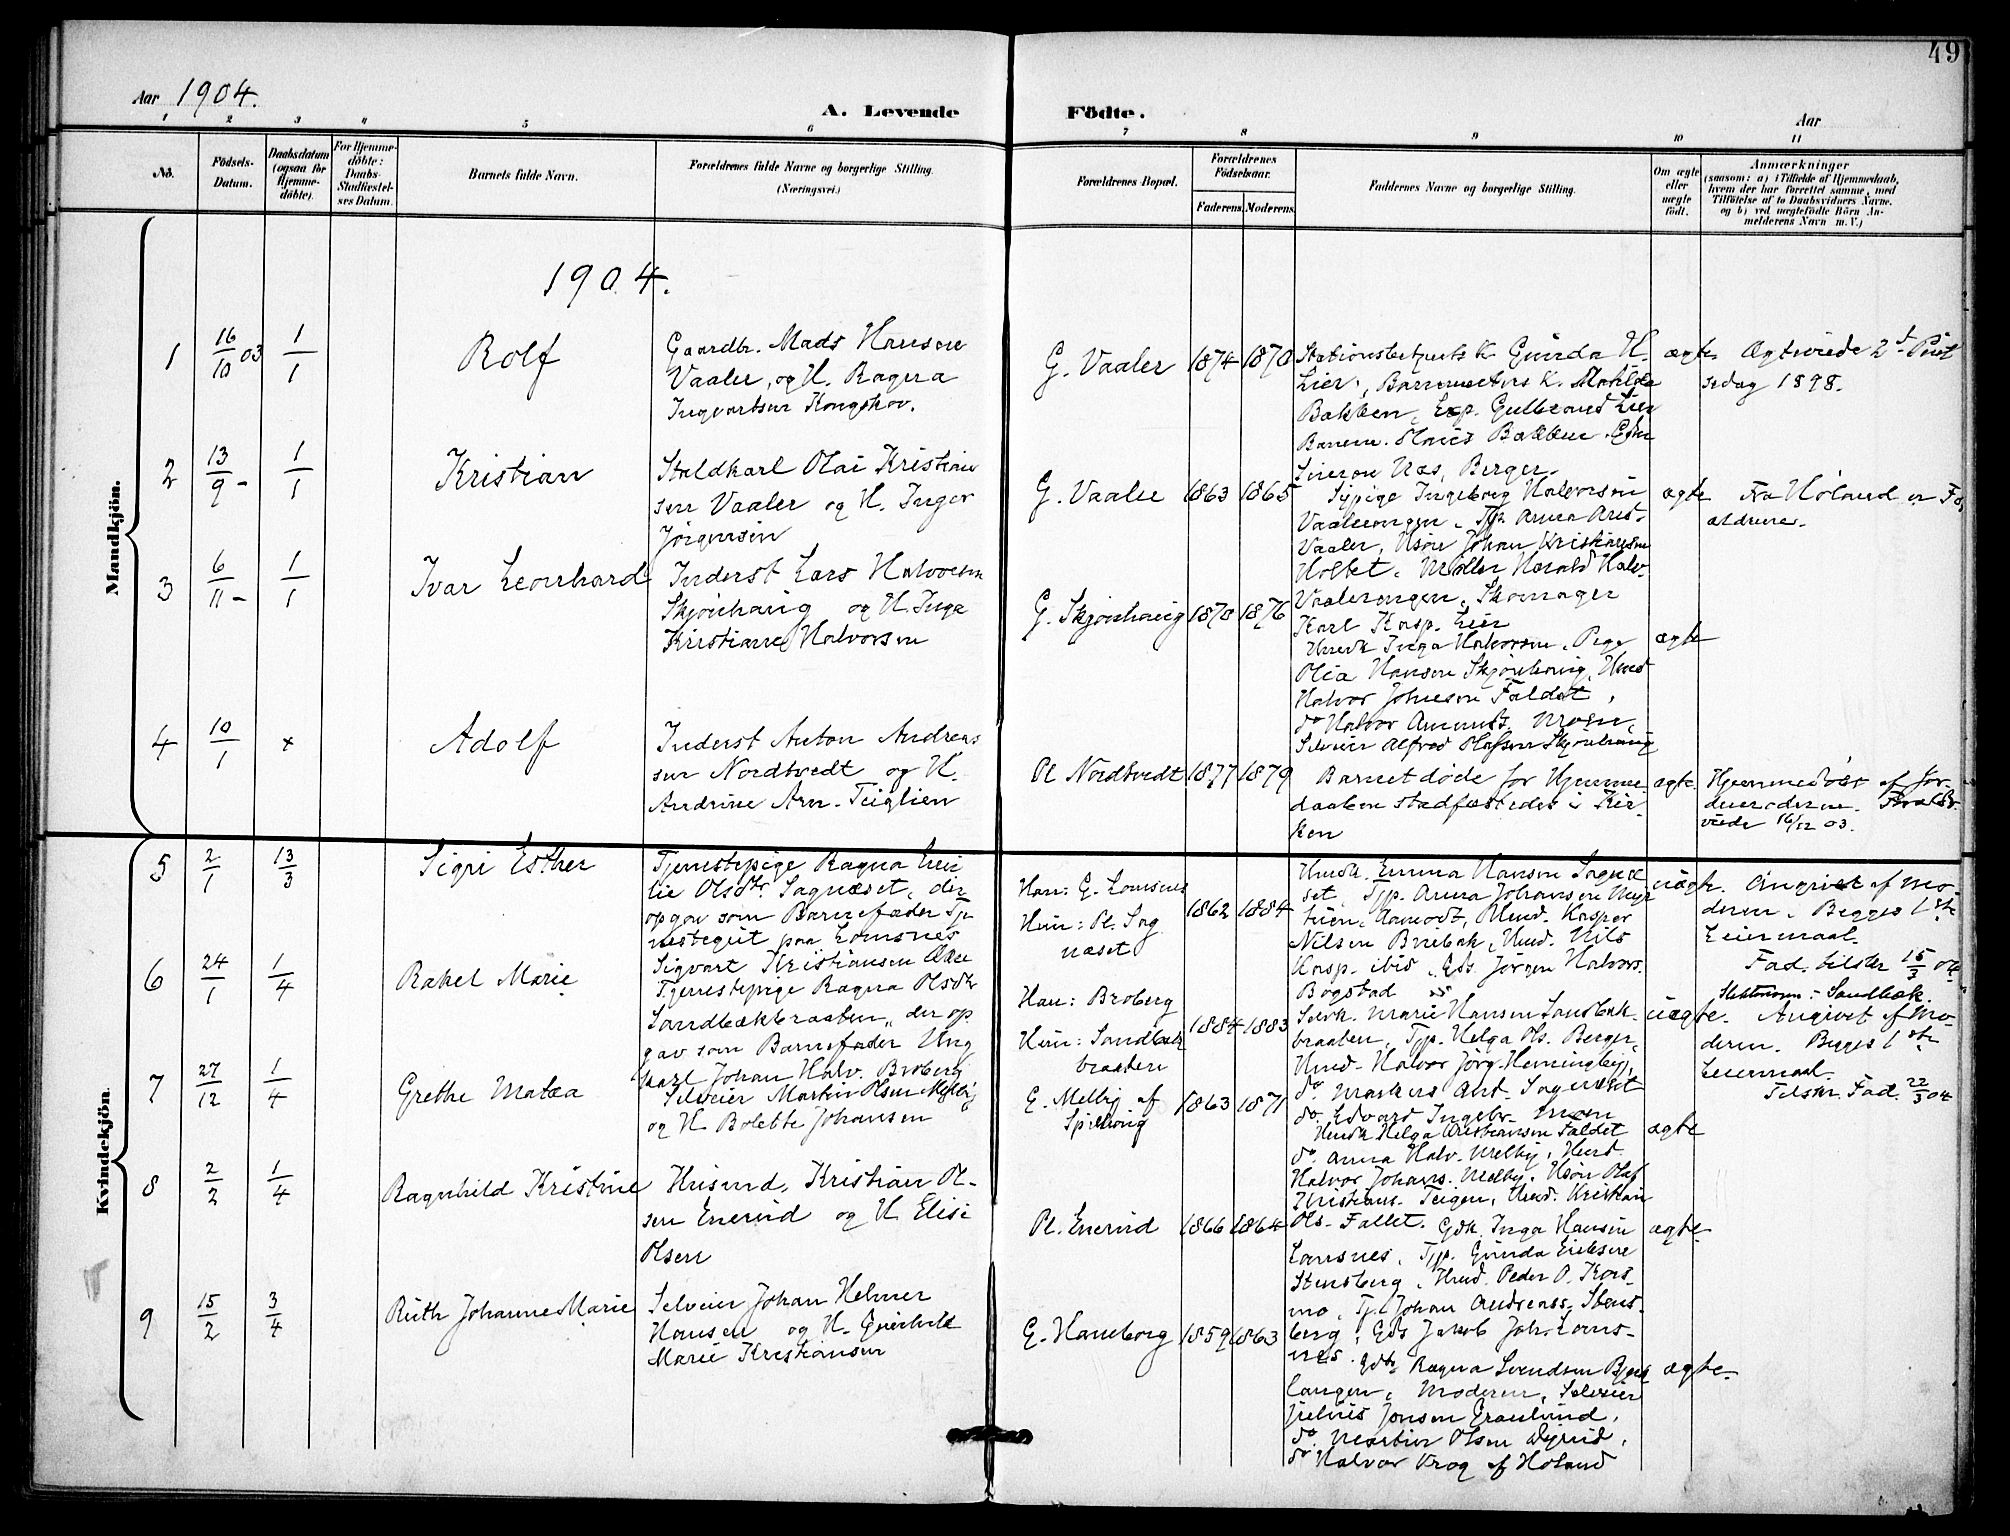 49
Aar 1904.
A. Levende Födte.
Aar
1 2 3 4 5 6 7 8 9 10 11
No.
Födsels-Datum.
Daabsdatum (ogsaa for Hjemme-döbte).
For Hjemme-döbte: Daabs-Stadfæstel-ses Datum.
Barnets fulde Navn.
Forældrenes fulde Navne og borgerlige Stilling.
(Næringsvei.)
Forældrenes Bopæl.
Forældrenes Födselsaar.
Faderens. Moderens.
Faddernes Navne og borgerlige Stilling.
Om ægte eller uægte födt.
Anmærkninger
(saasom: a) i Tilfælde af Hjemmedaab,
hvem der har forrettet samme, med
Tilföielse af to Daabsvidners Navne.
og b) ved uægtefödte Börn An-
melderens Navn m. V.)
Mandkjön.
1904.
1 16/10 03 1/1 Rolf
Gaardbr. Mads Hansen
Vaaler, og H. Ragna
Ingvartsen Kongskov.
G. Vaaler 1874 1870
Gunda H.
Lier, K. Mathilde
Bakken, Exp. Gulbrand Lier
Banem. Bakken
Næs, Berger.
ægte
2den Pint
sedag 1898.
2 13/9 - 1/1 Kristian
Staldkarl Olai Kristian
sen Vaaler og H. Inger
Jörgensen
G. Vaaler 1863 1865
Sypige Ingeborg Halvorsen
Vaalerengen, Tjp. Anna Arist.
Vaaler, Hsön Johan Kristiansen
Holtet, Möller Harald Halv.
Vaalerengen, Skomager
Karl Kasp. Lier
ægte
Fra Höland er For
ældrene.
3 6/11 - 1/1 Ivar Leonhard
Inderst Lars Halvorsen
Skjönhaug og H. Inga
Kristiane Halvorsen
G. Skjönhaug 1870 1876
Husmk Inga Halvorsen, Pige
Olia Hansen Skjönhaug, Husd
Halvor Johnsen Faldet,
do Halvor Amunds. Moen,
Selveier Alfred Olafsen Skjönhaug
ægte
4 10/1 x Adolf
Inderst Anton Andreas
sen Nordtvedt og H.
Andrine Arn. Teiglien
Pl. Nordtvedt 1877 1879
Barnet döde för Hjemme
daaben stadfæstedes i Kir-
ken
ægte.
Hjemmedöbt af Jor
demoderen.
viede 16/12 03.
Kvindekjön.
5 2/1 13/3 Sigri Esther
Tjenestepige Ragna
lie Olsdtr. Sagnæset, der
opgav som Barnefader Tje
nestegut paa Lomsnes
Sigvart Kristiansen
Han: G. Lomsnes
Hun: Pl. Sag
næset
1862 1884
Husmk. Emma Hansen Sagnæ
set, Tjp. Anna Johansen
Husmd. Kasper
Nilsen Husmd. Nils
Kasp. ibid, Gds. Jörgen Halvors.
Bogstad
uægte.
Angivet af Mo-
deren. Begges 1ste
Leiermaal.
Fad. tilstr 15/3 04
Sandbæk.
6 24/1 1/4 Rakel Marie
Tjenestepige Ragna Olsdtr
Sandbækbraaten, der op
gav som Barnefader Ung
karl Johan Halv. Broberg
Han: Broberg
Hun: Sandbæk
braaten
1884 1883
Selvk. Marie Hansen Sandbæk-
braaten, Tjp. Helga Ols. Berger,
Husmd. Halvor Jörg. Hemingbyj,
do. Markus And. Sagnæset
do Edvard Ingebr. Moen
uægte.
Angivet af Mo-
deren. Begges 1ste
Leiermaal.
Tilstr. Fad. 22/3 04
7 27/12 1/4 Grethe Matea
Selveier Martin Olsen Melby
og H. Bolette Johansen
G. Melby af
Spilhaug
1863 1871
Husmk Helga Kristiansen Faldet
do. Anna Halv. Melby, Husd.
Halvor Johans. Melby, Hsön Olaf
Kristians. Teigen, Husmd. Kristian
Ols. Fallet.
ægte
8 2/2 1/4 Ragnhild Kristine
Husmd. Kristian Ol-
sen Enerud og H. Elise
Olsen
Pl. Enerud 1866 1864
Gdk. Inga Hansen
Lomsnes, Tjp. Gunda Eriksen
Stensberg, Husmd. Peder O. Kors-
mo, Tj. Johan Andreass. Stens-
berg, Gds Jakob Joh. Loms-
nes.
ægte
9 15/2 3/4 Ruth Johanne Marie
Selveier Johan Helmer
Hansen og H. Gunhild
Marie Kristiansen
G. Haneborg 1859 1863
Ragna Svendsen
langen, Moderen, Selveier
Julius Jonsen
do. Martin Olsen
do. Halvor Krog af Höland
ægte.